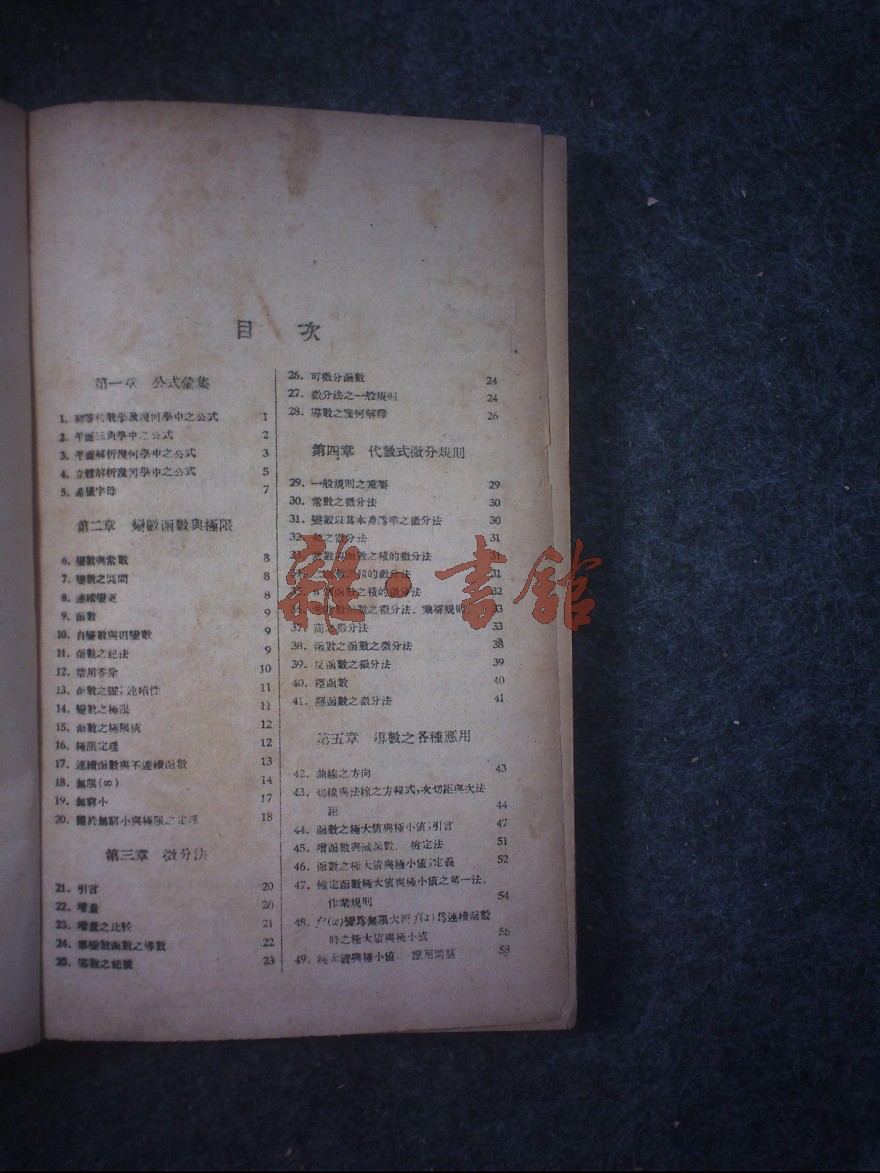 目 次
第一章 公式彙集
1. 初等代數學及幾何學中之公式 1
2. 平面三角學中之公式 2
3. 平面解析幾何學中之公式 3
4. 立體解析幾何學中之公式 5
5. 希臘字母 7
第二章 變數函數與極限
6. 變數與常數 8
7. 變數之區間 8
8. 連續變更 8
9. 函數 9
10. 自變數與因變數 9
11. 函數之記法 9
12. 禁用零除 10
13. 函數之圖；連續性 11
14. 變數之極限 11
15. 函數之極限值 12
16. 極限定理 12
17. 連續函數與不連續函數 13
18. 無限(∞) 14
19. 無窮小 17
20. 關於無窮小與極限之定理 18
第三章 微分法
21. 引言 20
22. 增量 20
23. 增量之比較 21
24. 單變數函數之導數 22
25. 導數之記號 23
26. 可微分函數 24
27. 微分法之一般規則 24
28. 導數之幾何解釋 26
第四章 代數式微分規則
29. 一般規則之重要 29
30. 常數之微分法 30
31. 變數以其本身爲準之微分法 30
32. 之微分法 31
33. 常數與函數之積的微分法 31
之積的微分法 31
函數之積的微分法 32
函數之微分法，乘冪規則 33
37. 商之微分法 33
38. 函數之函數之微分法 38
39. 反函數之微分法 39
40. 隱函數 40
41. 隱函數之微分法 41
第五章 導數之各種應用
42. 曲線之方向 43
43. 切線與法線之方程式；次切距與次法
距 44
44. 函數之極大值與極小值；引言 47
45. 增函數與減函數． 檢定法 51
46. 函數之極大值與極小值；定義 52
47. 檢定函數極大值與極小值之第一法．
作業規則 54
48. f′(x)變爲無限大而f(x)爲連續函數
時之極大值與極小值 56
49. 極大值與極小值． 應用問題 58
雜·書館